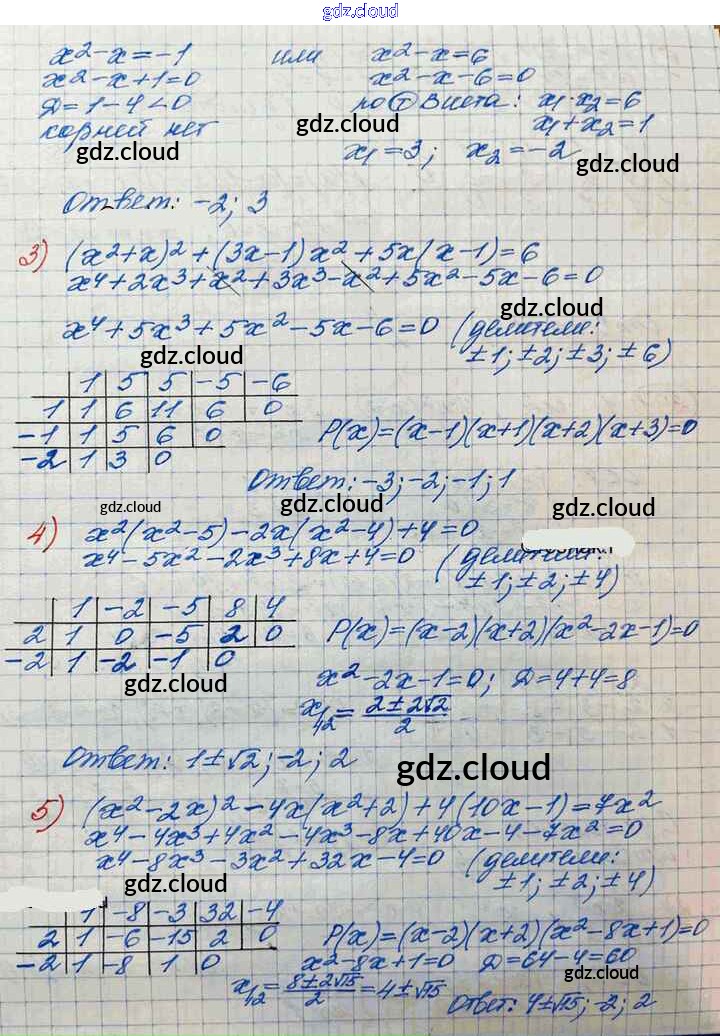 gdz.cloud
x²-x=-1 или x²-x=6
x²-x+1=0 x²-x-6=0
Д=1-4<0 по Т Виета: x₁·x₂=6
корней нет gdz.cloud x₁+x₂=1
gdz.cloud x₁=3; x₂=-2 gdz.cloud
Ответ: -2; 3
3) (x²+x)²+(3x-1)x²+5x(x-1)=6
x⁴+2x³+x²+3x³-x²+5x²-5x-6=0
gdz.cloud
x⁴+5x³+5x²-5x-6=0 (делители:
gdz.cloud ±1; ±2; ±3; ±6)
1 5 5 -5 -6
1 1 6 11 6 0
-1 1 5 6 0 P(x)=(x-1)(x+1)(x+2)(x+3)=0
-2 1 3 0
Ответ: -3; -2; -1; 1
gdz.cloud gdz.cloud gdz.cloud
4) x²(x²-5)-2x(x²-4)+4=0
x⁴-5x²-2x³+8x+4=0 (делители:
gdz.cloud ±1; ±2; ±4)
1 -2 -5 8 4
2 1 0 -5 2 0 P(x)=(x-2)(x+2)(x²-2x-1)=0
-2 1 -2 -1 0
gdz.cloud x²-2x-1=0; Д=4+4=8
x₁,₂=(2±2√2)/2
Ответ: 1±√2; -2; 2
gdz.cloud
5) (x²-2x)²-4x(x²+2)+4(10x-1)=7x²
x⁴-4x³+4x²-4x³-8x+40x-4-7x²=0
x⁴-8x³-3x²+32x-4=0 (делители:
gdz.cloud ±1; ±2; ±4)
1 -8 -3 32 -4
2 1 -6 -15 2 0 P(x)=(x-2)(x+2)(x²-8x+1)=0
-2 1 -8 1 0 x²-8x+1=0 Д=64-4=60
gdz.cloud x₁,₂=(8±2√15)/2=4±√15 gdz.cloud
Ответ: 4±√15; -2; 2